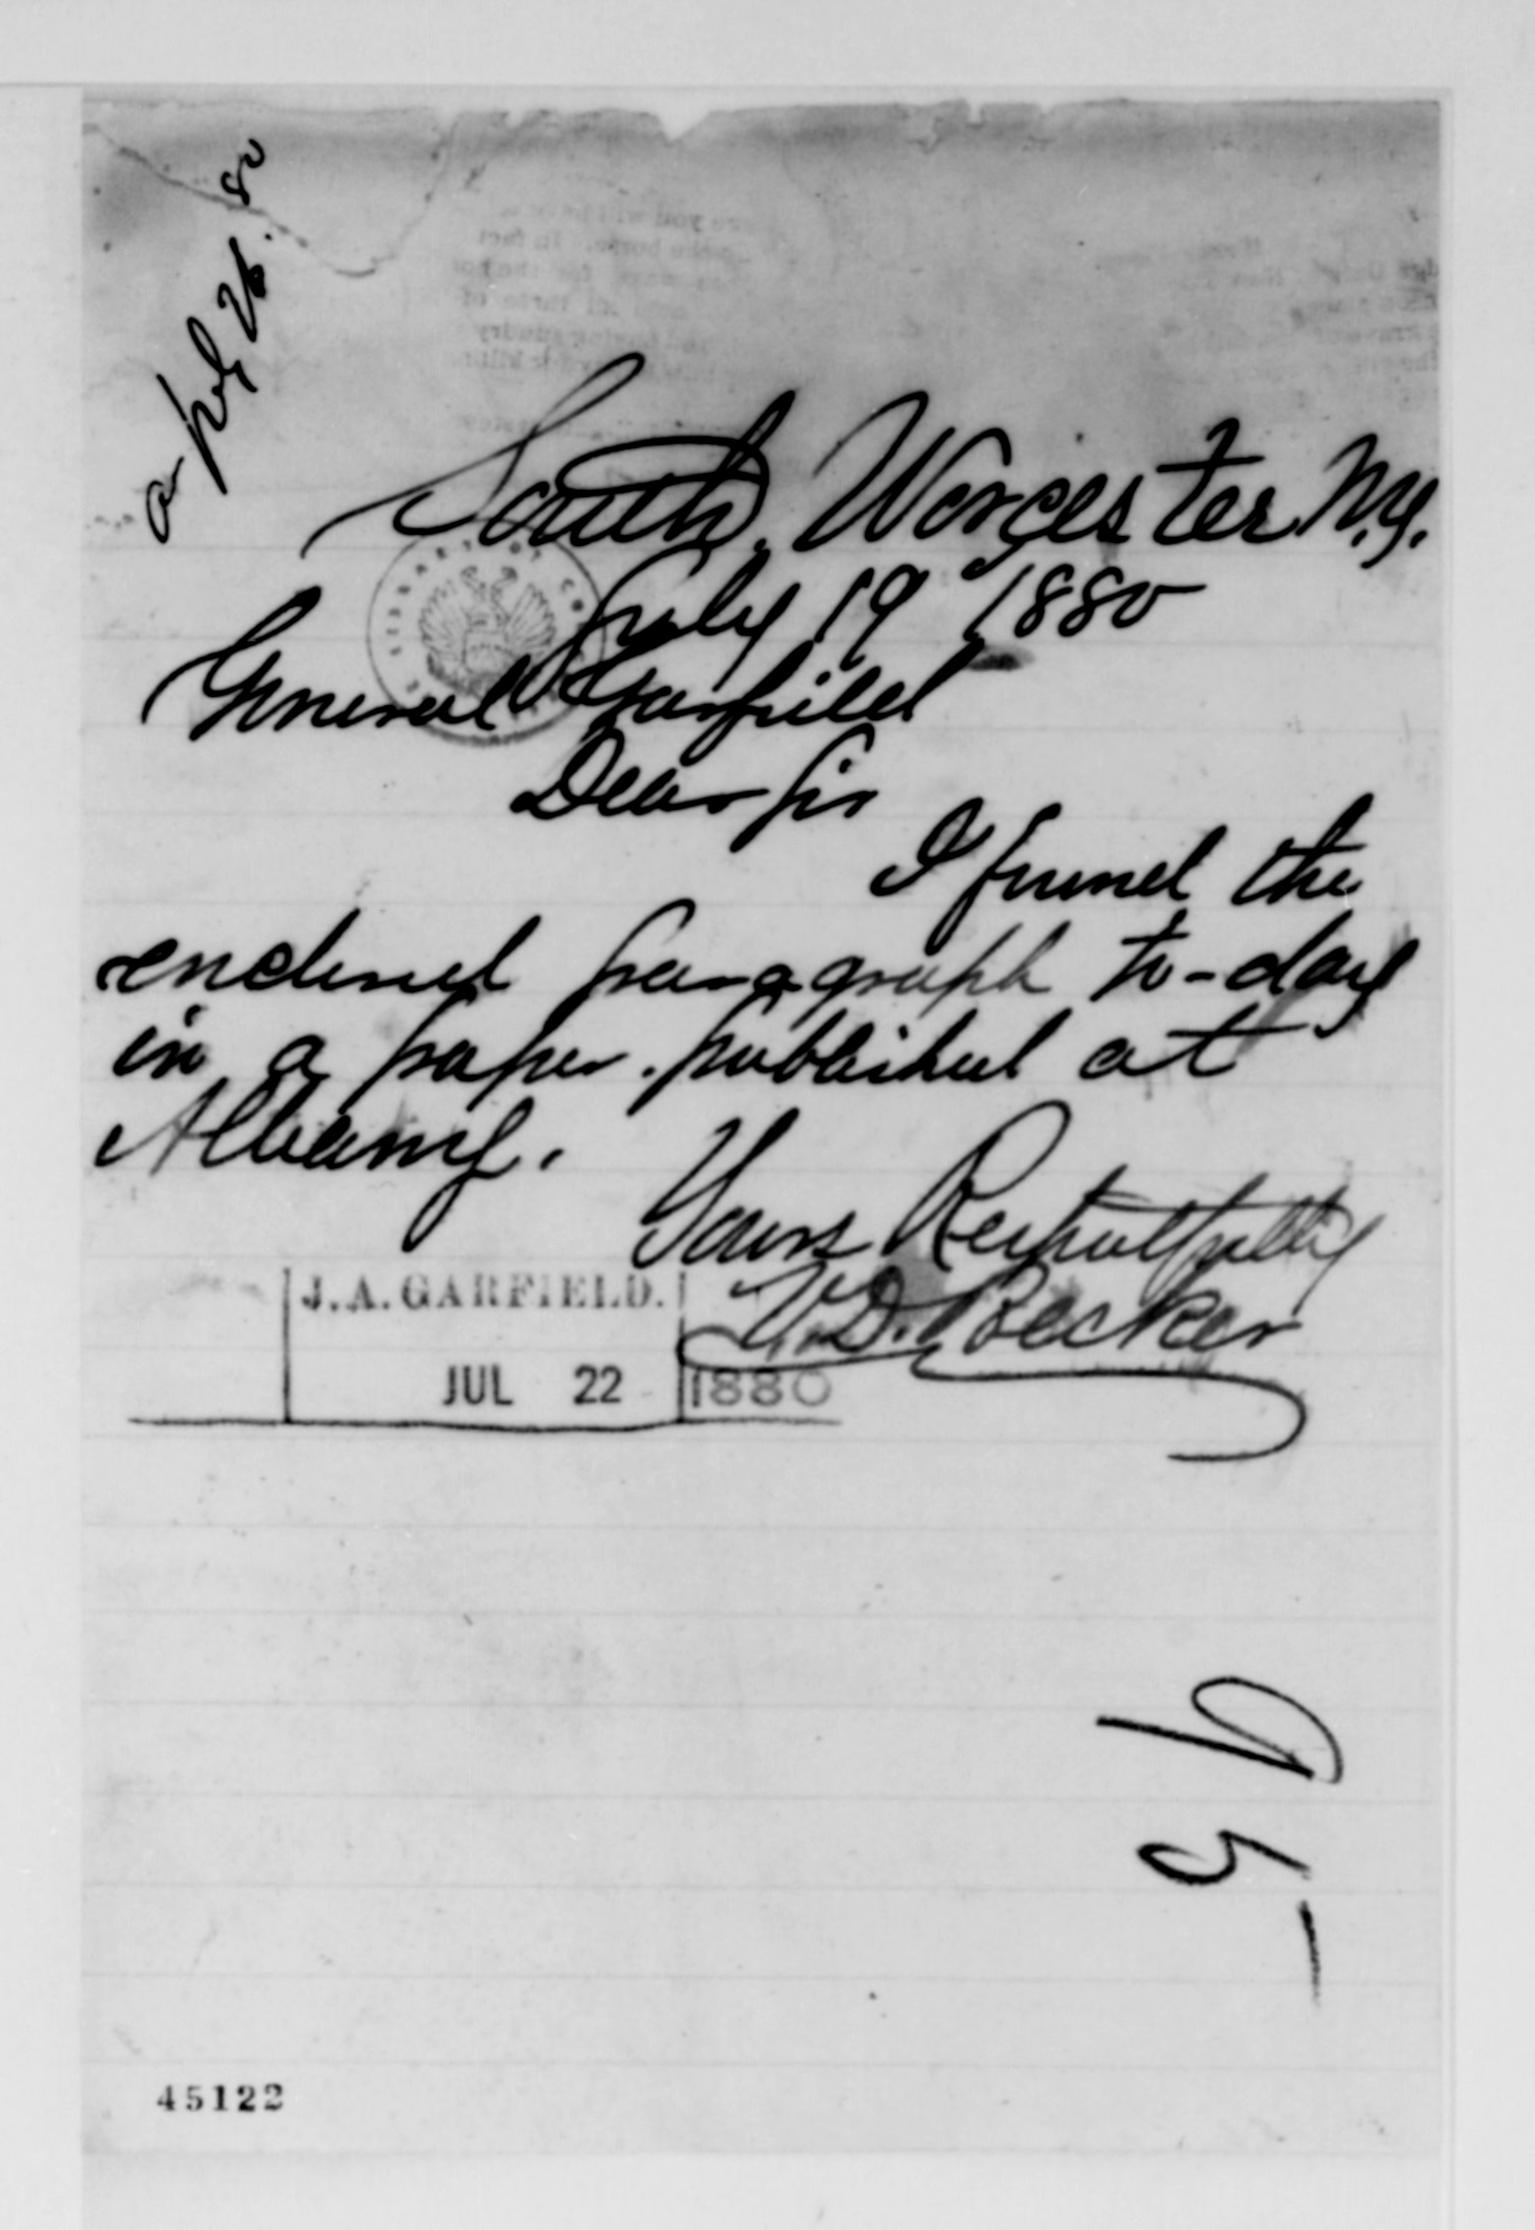 a July 26. 80
South Worcester N.Y.
July 19 1880
General Garfield
Dear Sir
I found the
enclosed paragraph to-day
in a paper published at
Albany.
Yours Respectfully
V.D. Becker
J.A. GARFIELD.
JUL 22 1880
45122